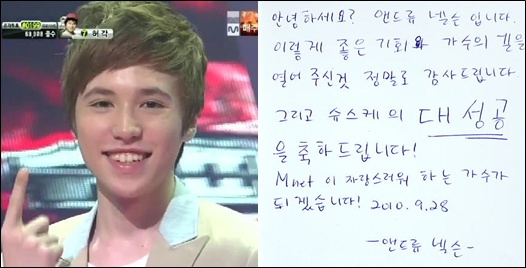 슈퍼스타K #0199
7 허각
M
안녕하세요? 앤드류 넥슨 입니다.
이렇게 좋은 기회와 가수의 길을
열어 주신것 정말로 감사드립니다
그리고 슈스케의 대성공
을 축하드립니다!
Mnet 이 자랑스러워 하는 가수가
되겠습니다! 2010.9.28
-앤드류 넥슨-